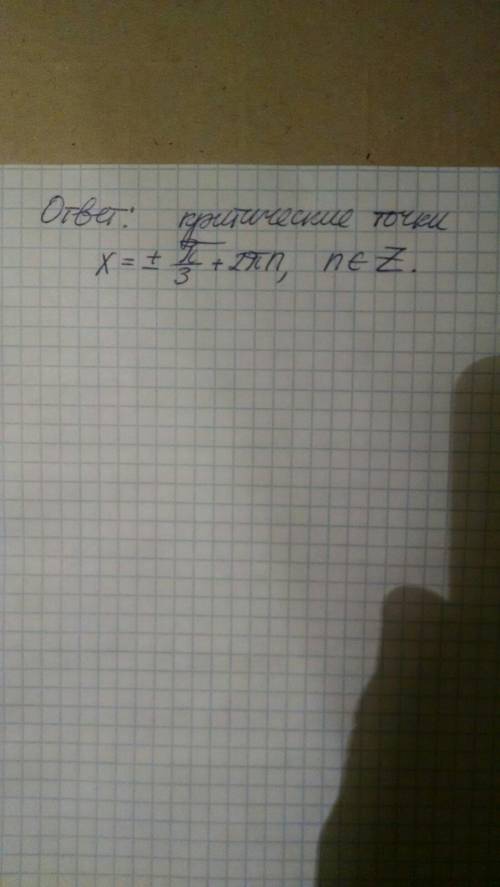 Ответ: критические точки
x = ± π/3 + 2πn, n ∈ Z.